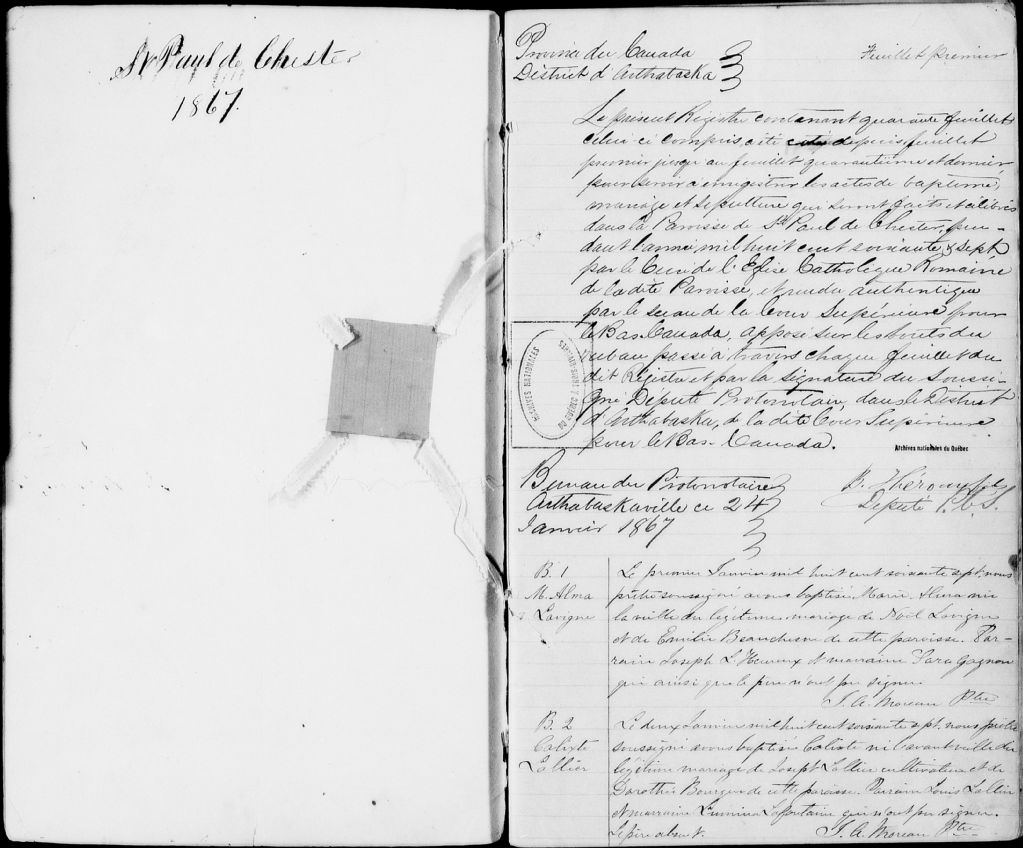 St Paul de Chester
1867.
Province du Canada
District d'Arthabaska
Feuillet premier
Le présent Registre contenant quarante feuillets
celui ci compris, côté depuis feuillet
premier jusqu'au feuillet quarantième et dernier
pour servir à enregistrer les actes de baptême,
mariage et sépulture qui seront faits et célébrés
dans la Paroisse de St Paul de Chester, pen-
dant l'année mil huit cent soixante & sept,
par le Curé de l'Eglise Catholique Romaine
de la dite Paroisse, et rendu authentique
par le sceau de la Cour Supérieure pour
le Bas-Canada, apposé sur les bouts du
ruban passé à travers chaque feuillet du
dit Régistre et par la signature du Soussi-
gné Député Protonotaire, dans le District
d'Arthabaska, de la dite Cour Supérieure
pour le Bas-Canada.
ARCHIVES NATIONALES
DU QUÉBEC
Archives nationales du Québec
Bureau du Protonotaire
Arthabaskaville ce 24
Janvier 1867
Député P.C.S.
B. 1
M. Alma
Lavigne
Le premier Janvier mil huit cent soixante sept, nous
prêtre soussigné avons baptisé Marie Alma née
la veille du légitime mariage de Noël Lavigne
et de Emilie Beauchesne de cette paroisse. Par-
rain Joseph L'Heureux et marraine Sara Gagnon
qui ainsi que le père n'ont pu signer.
J. A. Moreau Ptre
B. 2
Calixte
Lallier
Le deux Janvier mil huit cent soixante sept, nous prêtre
soussigné avons baptisé Calixte né l'avant veille du
légitime mariage de Joseph Lallier cultivateur et de
Dorothée Bourgeois de cette paroisse. Parrain Louis Lallier
et marraine Lumina Lafontaine qui n'ont pu signer.
Le père absent.
J. A. Moreau Ptre